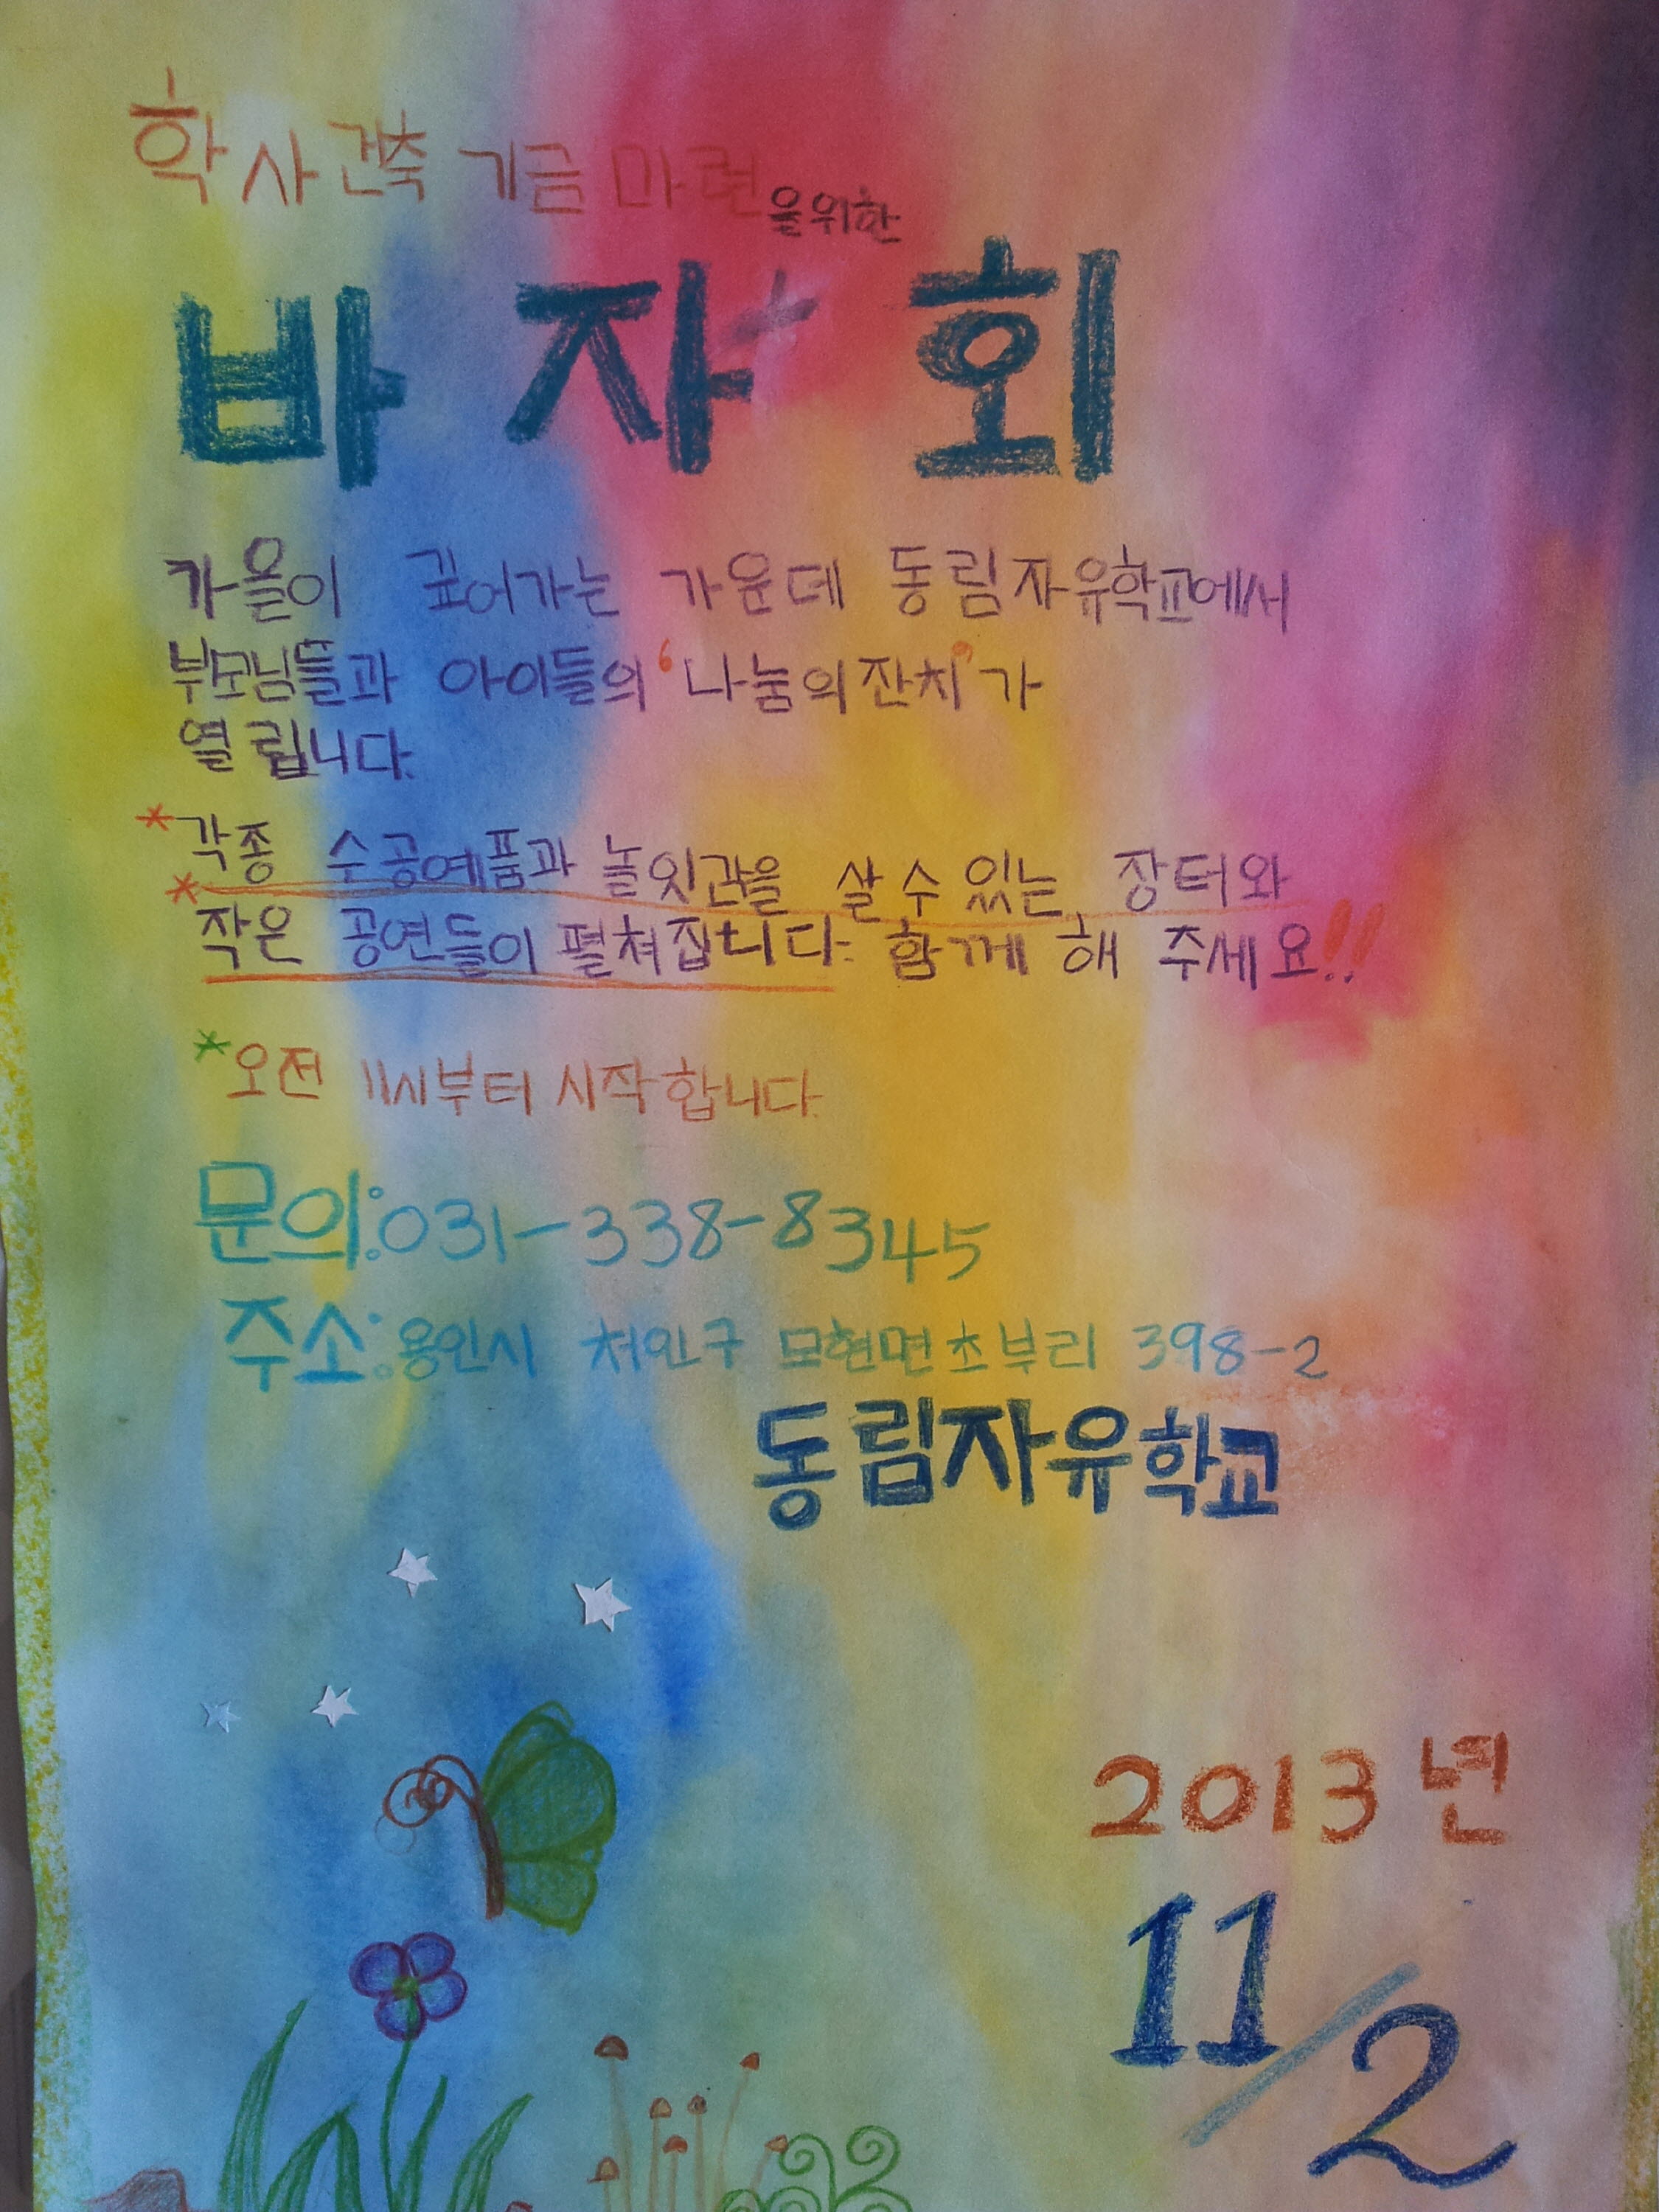 학사건축 기금 마련을위한
바자회
가을이 깊어가는 가운데 동림자유학교에서
부모님들과 아이들의 '나눔의잔치'가
열립니다.
*각종 수공예품과 놀잇감을 살 수 있는 장터와
*작은 공연들이 펼쳐집니다. 함께 해 주세요!!
*오전 11시부터 시작합니다.
문의:031-338-8345
주소:용인시 처인구 모현면초부리 398-2
동림자유학교
2013년
11/2